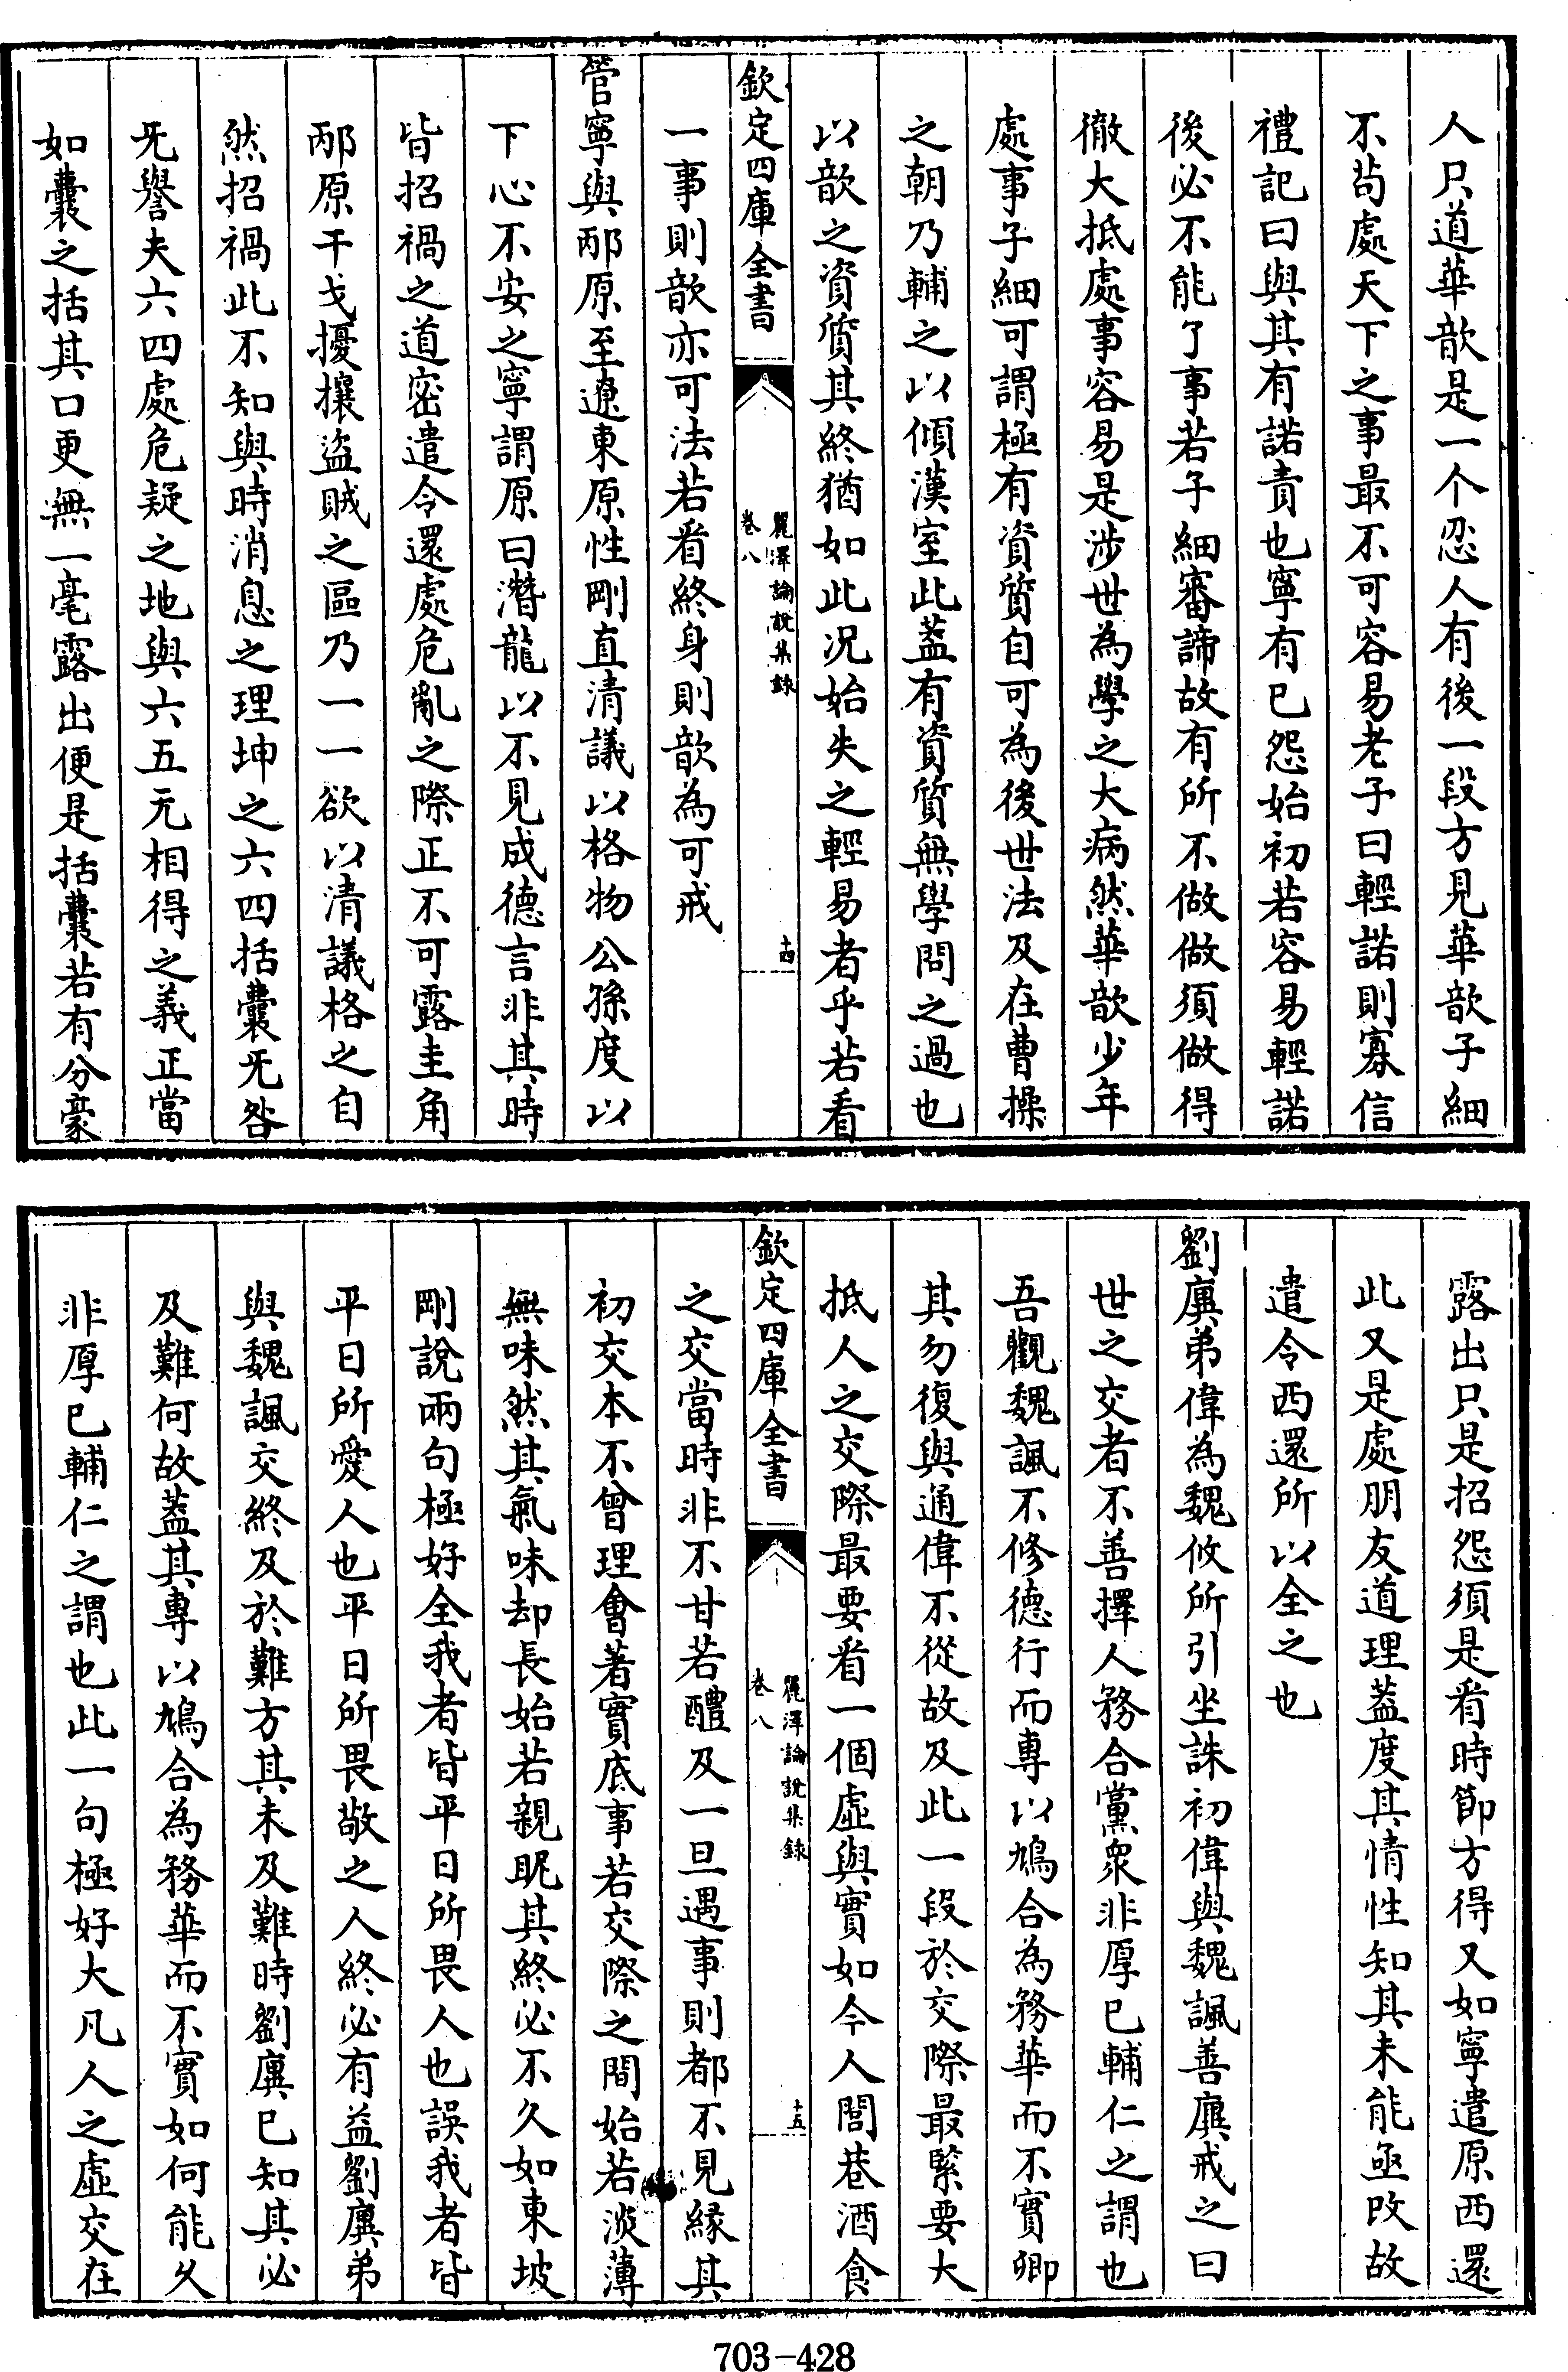 人只道華歆是一个忍人有後一段方見華歆子細
不苟處天下之事最不可容易老子曰輕諾則寡信
禮記曰與其有諾責也寧有已怨始初若容易輕諾
後必不能了事若子細審諦故有所不做做須做得
徹大抵處事容易是涉世為學之大病然華歆少年
處事子細可謂極有資質自可為後世法及在曹操
之朝乃輔之以傾漢室此葢有資質無學問之過也
以歆之資質其終猶如此况始失之輕易者乎若看
欽定四庫全書
麗澤論說集錄
卷八
十四
一事則歆亦可法若看終身則歆為可戒
管寧與邴原至遼東原性剛直清議以格物公孫度以
下心不安之寧謂原曰潛龍以不見成德言非其時
皆招禍之道密遣令還處危亂之際正不可露圭角
邴原干戈擾攘盜賊之區乃一一欲以清議格之自
然招禍此不知與時消息之理坤之六四括囊无咎
无譽夫六四處危疑之地與六五元相得之義正當
如囊之括其口更無一毫露出便是括囊若有分豪
露出只是招怨須是看時節方得又如寧遣原西還
此又是處朋友道理葢度其情性知其未能亟改故
遣令西還所以全之也
劉廙弟偉為魏攸所引坐誅初偉與魏諷善廙戒之曰
世之交者不善擇人務合黨衆非厚已輔仁之謂也
吾觀魏諷不修德行而專以鳩合為務華而不實卿
其勿復與通偉不從故及此一段於交際最緊要大
抵人之交際最要看一個虛與實如今人閭巷酒食
欽定四庫全書
麗澤論說集錄
卷八
十五
之交當時非不甘若醴及一旦遇事則都不見緣其
初交本不曾理會著實底事若交際之間始若淡薄
無味然其氣味却長始若親昵其終必不久如東坡
剛說兩句極好全我者皆平日所畏人也誤我者皆
平日所愛人也平日所畏敬之人終必有益劉廙弟
與魏諷交終及於難方其未及難時劉廙已知其必
及難何故葢其專以鳩合為務華而不實如何能久
非厚已輔仁之謂也此一句極好大凡人之虛交在
703-428